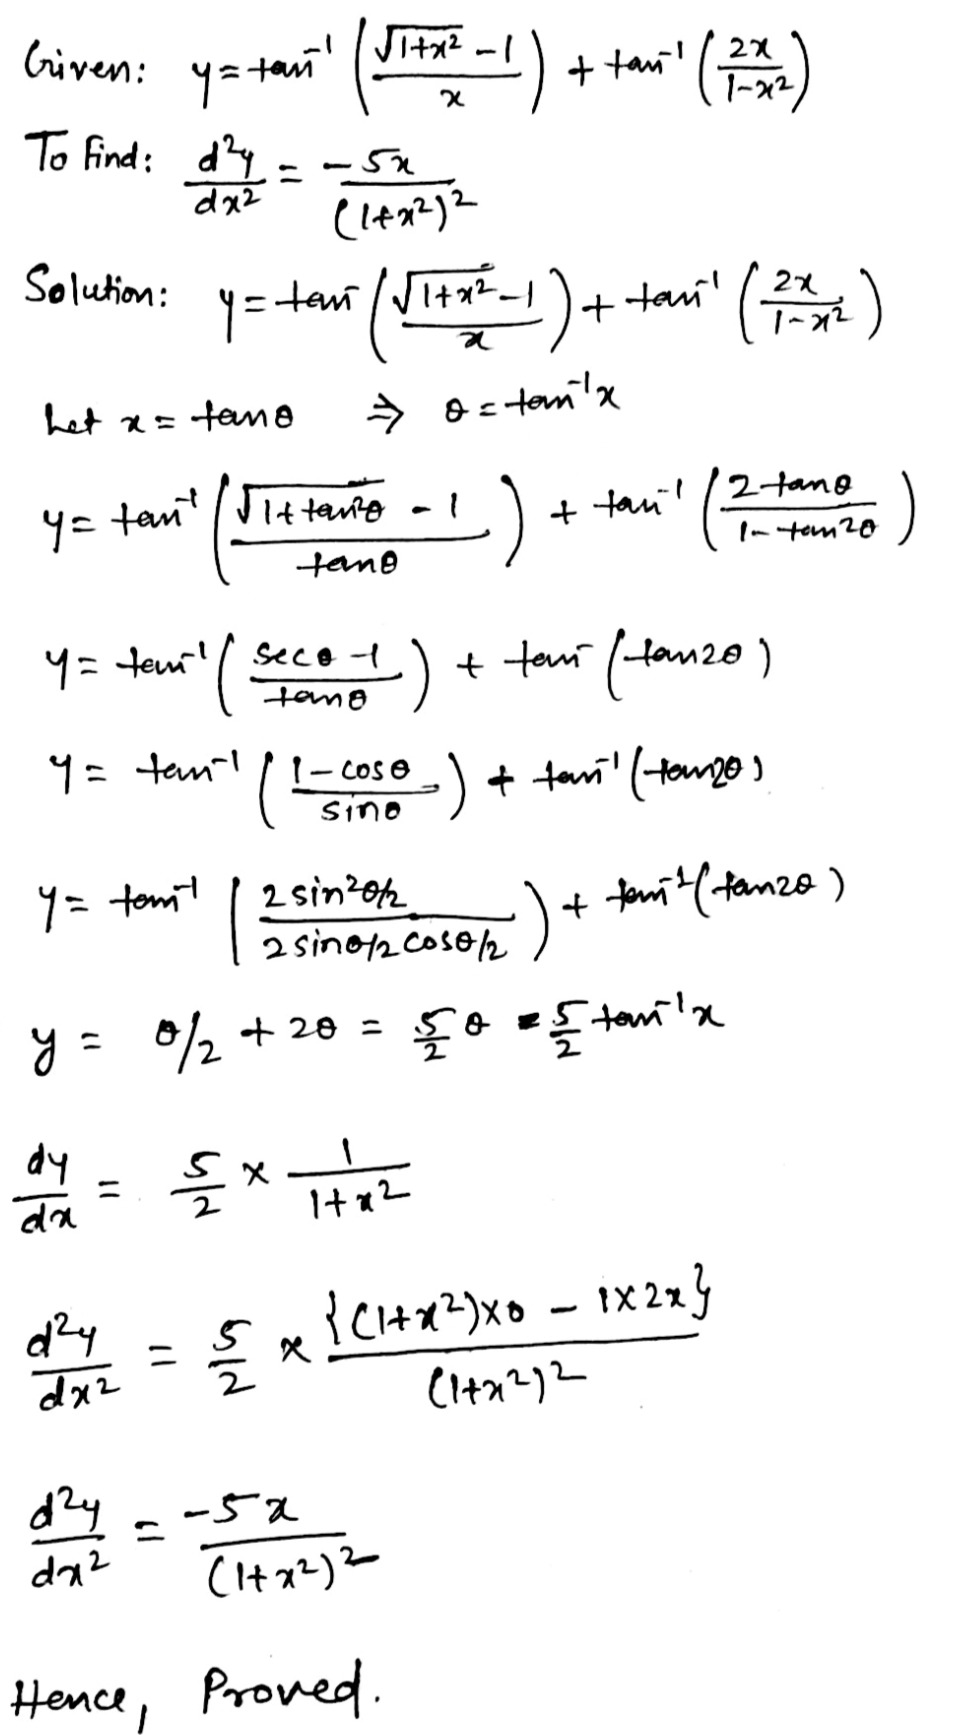 Given: y = tan⁻¹ ( (√(1+x²) − 1) / x ) + tan⁻¹ ( 2x / (1−x²) )
To Find: d²y/dx² = −5x / (1+x²)²
Solution: y = tan⁻ ( (√(1+x²) − 1) / x ) + tan⁻¹ ( 2x / (1−x²) )
Let x = tanθ ⇒ θ = tan⁻¹x
y = tan⁻¹ ( (√(1+tan²θ) − 1) / tanθ ) + tan⁻¹ ( 2tanθ / (1−tan²θ) )
y = tan⁻¹ ( (secθ − 1) / tanθ ) + tan⁻ (tan2θ)
y = tan⁻¹ ( (1 − cosθ) / sinθ ) + tan⁻¹ (tan2θ)
y = tan⁻¹ ( 2sin²θ/2 / 2sinθ/2 cosθ/2 ) + tan⁻¹ (tan2θ)
y = θ/2 + 2θ = 5/2 θ = 5/2 tan⁻¹x
dy/dx = 5/2 × 1/(1+x²)
d²y/dx² = 5/2 × {(1+x²)×0 − 1×2x} / (1+x²)²
d²y/dx² = −5x / (1+x²)²
Hence, Proved.